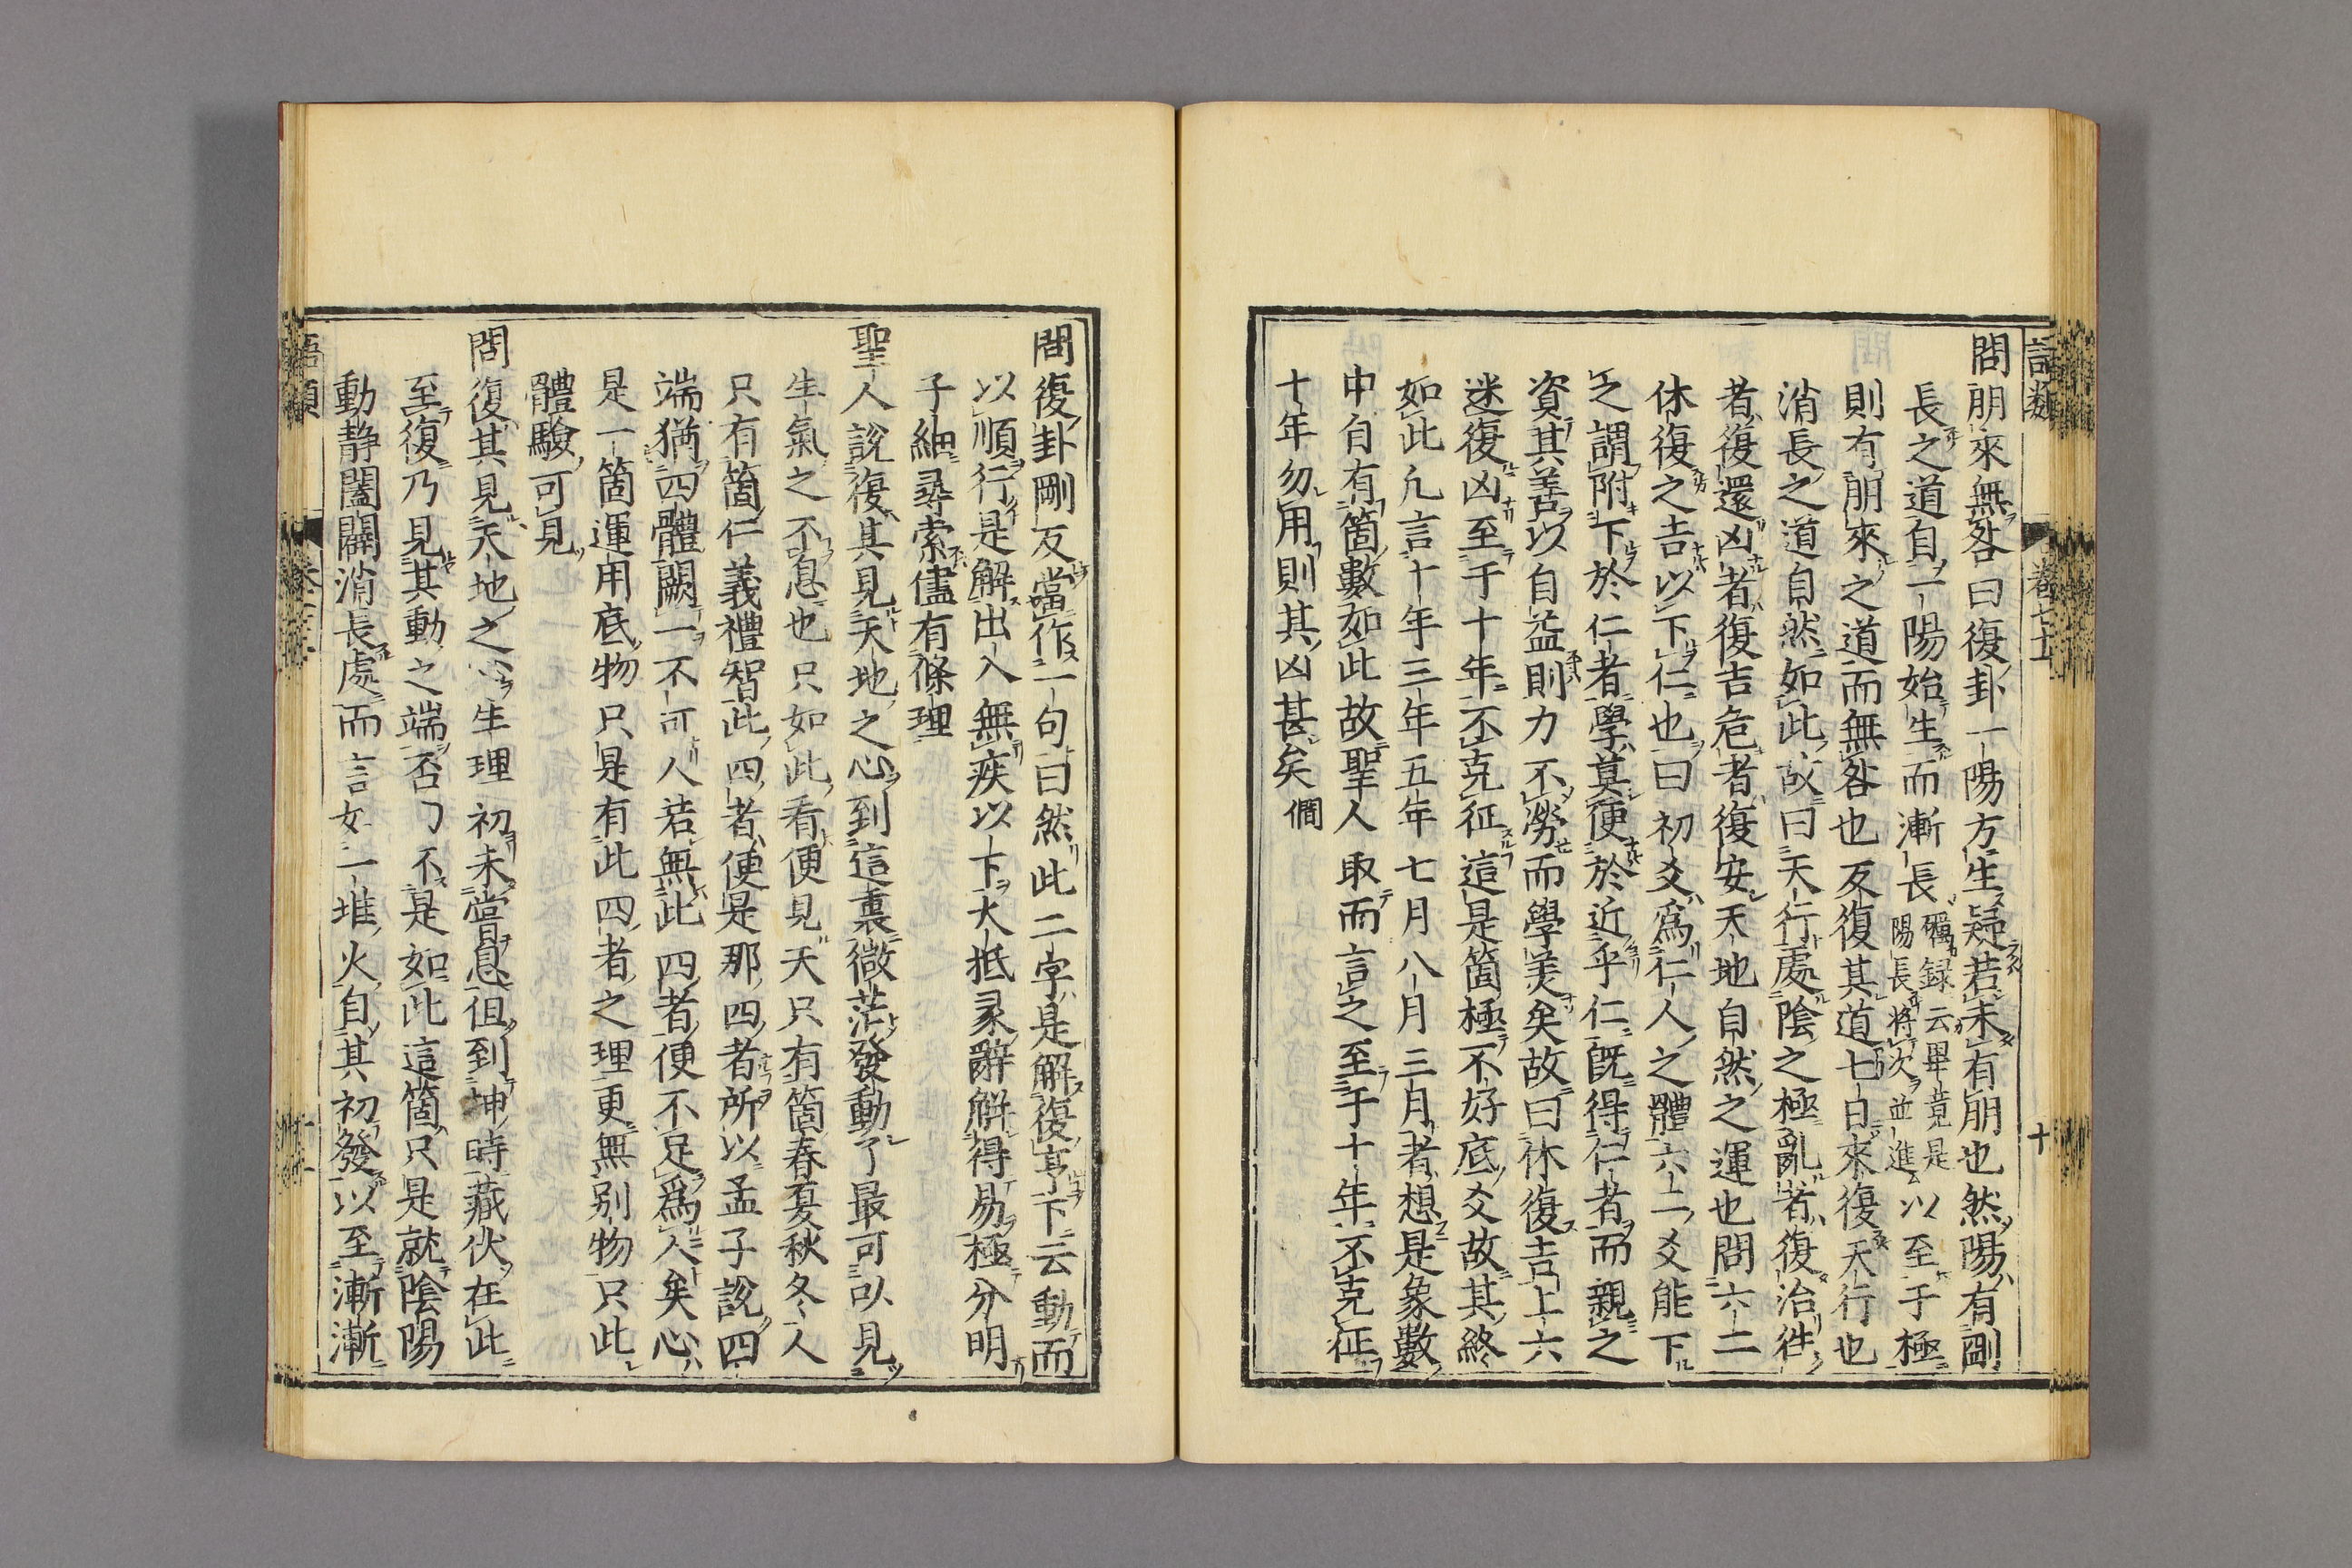 語類
卷七十一
十
問朋來無咎曰復卦一陽方生疑若未有朋也然陽有剛
長之道自一陽始生而漸長礪録云畢竟是陽長將次並進以至于極
則有朋來之道而無咎也反復其道七日來復天行也
消長之道自然如此故曰天行處陰之極亂者復治徃
者復還凶者復吉危者復安天地自然之運也問六二
休復之吉以下仁也曰初爻爲仁人之體六二爻能下
之謂附下於仁者學莫便於近乎仁既得仁者而親之
資其善以自益則力不勞而學美矣故曰休復吉上六
迷復凶至于十年不克征這是箇極不好底爻故其終
如此凡言十年三年五年七月八月三月者想是象數
中自有箇數如此故聖人取而言之至于十年不克征
十年勿用則其凶甚矣僩
問復卦剛反當作一句曰然此二字是解復亨下云動而
以順行是解出入無疾以下大抵彖辭觧得易極分明
子細尋索儘有條理
聖人說復其見天地之心到這裏微茫發動了最可以見
生氣之不息也只如此看便見天只有箇春夏秋冬人
只有箇仁義禮智此四者便是那四者所以孟子說四
端猶四體闕一不可人若無此四者便不足爲人矣心
是一箇運用底物只是有此四者之理更無别物只此
體驗可見
問復其見天地之心生理初未甞息但到坤時藏伏在此
至復乃見其動之端否曰不是如此這箇只是就陰陽
動静闔闢消長處而言如一堆火自其初發以至漸漸
語類